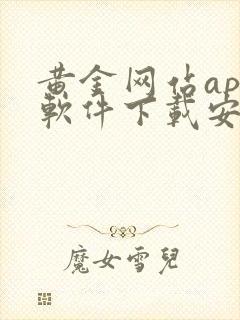 黄金网佔ap
軟件下載安
魔女雪兒